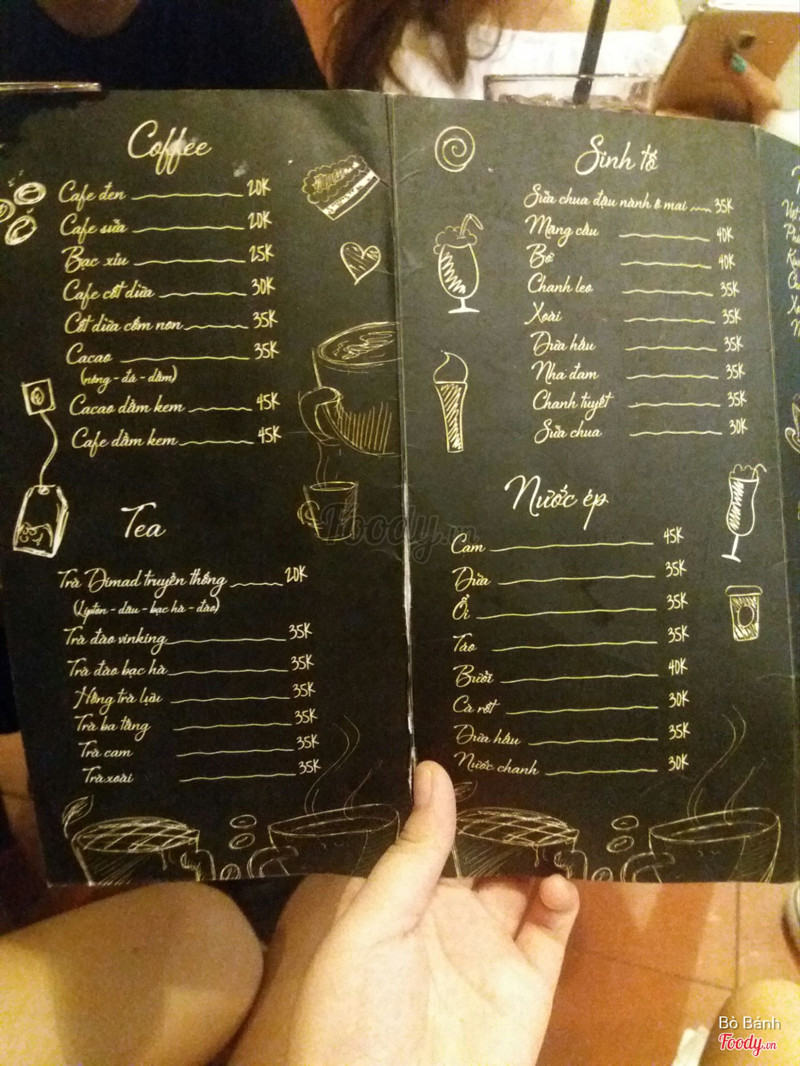 Coffee
Cafe đen 20K
Cafe sữa 20K
Bạc xỉu 25K
Cafe cốt dừa 30K
Cốt dừa cốm non 35K
Cacao 35K
(nóng - đá - dầm)
Cacao dầm kem 45K
Cafe dầm kem 45K
Tea
Trà Dimad truyền thống 20K
(Lipton - dâu - bạc hà - đào)
Trà đào vinking 35K
Trà đào bạc hà 35K
Hồng trà lựu 35K
Trà ba tầng 35K
Trà cam 35K
Trà xoài 35K
Sinh tố
Sữa chua đậu nành ô mai 35K
Mãng cầu 40K
Bơ 40K
Chanh leo 35K
Xoài 35K
Dưa hấu 35K
Nha đam 35K
Chanh tuyết 35K
Sữa chua 30K
Nước ép
Cam 45K
Dứa 35K
Ổi 35K
Táo 35K
Bưởi 40K
Cà rốt 30K
Dưa hấu 35K
Nước chanh 30K
Foody.vn
Bò Bánh
Foody.vn